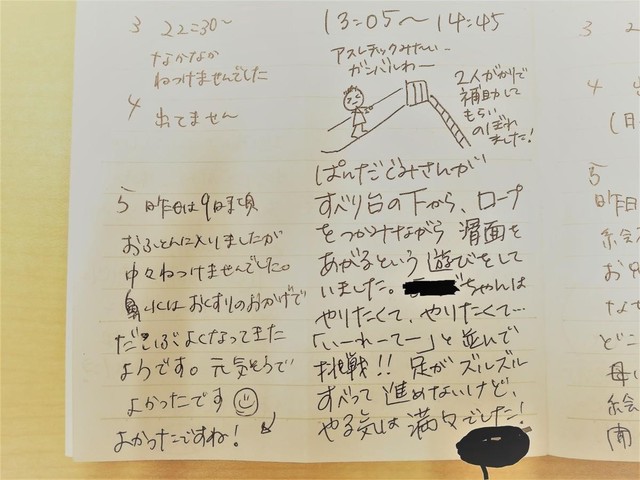 3 22:30～
なかなか
ねつけませんでした
4 出てません
5 昨日は9時頃
おふとんに入りましたが
中々ねつけませんでした。
鼻水はおくすりのおかげで
だいぶよくなってきた
ようです。元気そうで
よかったです
よかったですね！
13:05～14:45
アスレチックみたいー
ガンバルわー
2人がかりで
補助して
もらい
のぼれ
ました！
ぱんだぐみさんが
すべり台の下から、ロープ
をつかみながら 滑面を
あがるという 遊びをして
いました。 ちゃんは
やりたくて、やりたくて…
「いーれーてー」と並んで
挑戦!! 足がズルズル
すべって 進めないけど、
やる気は 満々でした！
3 2
4
(日
5
昨日
絵
お
なせ
どこ
母
絵